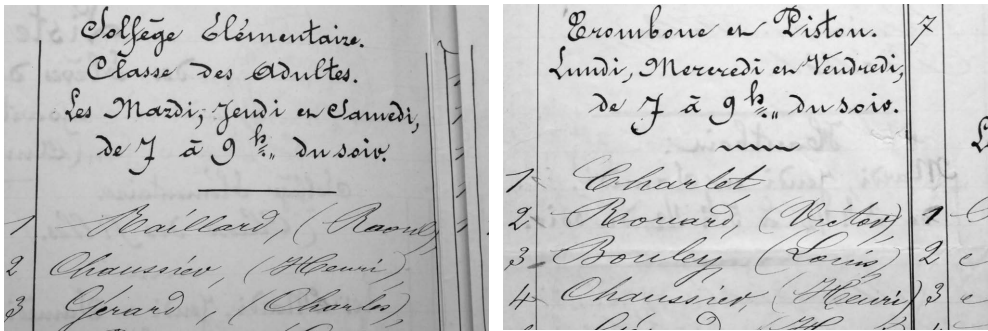 Solfège Élémentaire.
Classe des Adultes.
Les Mardi, Jeudi et Samedi,
de 7 à 9 h. du soir.
1 Maillard, (Raoul)
2 Chaussier, (Henri)
3 Gérard, (Charles),
Trombone et Piston.
Lundi, Mercredi et Vendredi,
de 7 à 9 h. du soir.
1 Charlet
2 Rouard, (Victor)
3 Bouley (Louis)
4 Chaussier, (Henri)
7
1
2
3